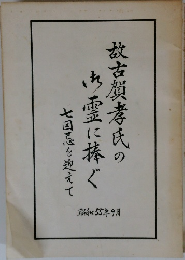 故古賀孝氏の
御霊に捧ぐ
七回忌を迎えて
昭和55年9月